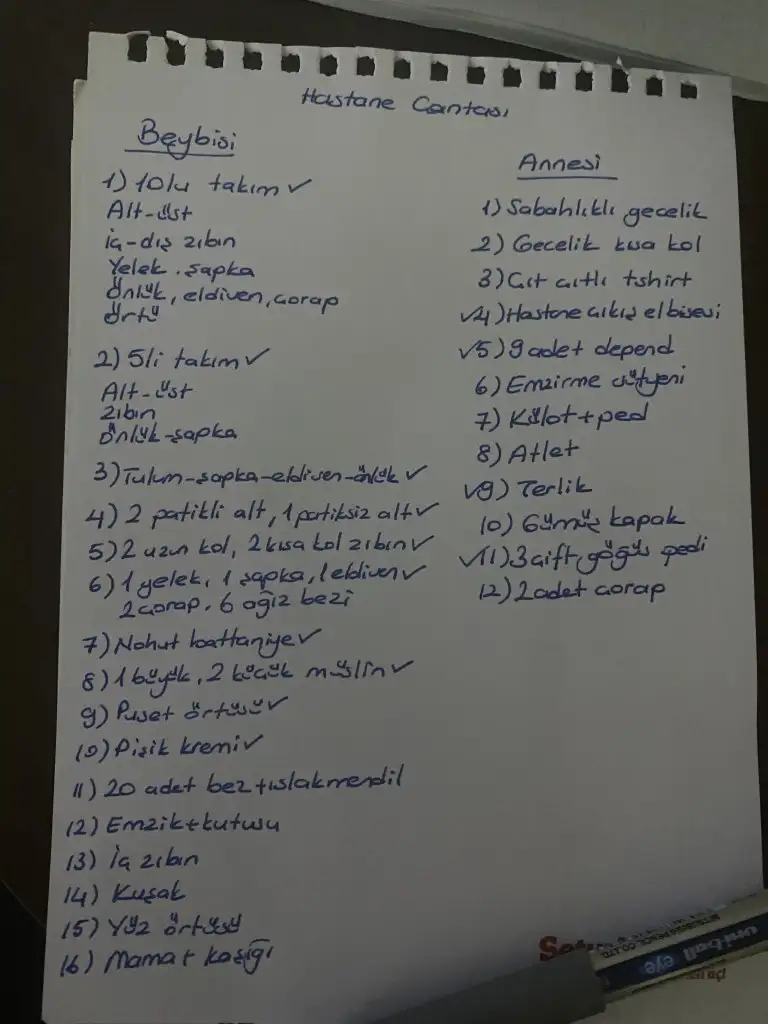 Hastane Çantası
Beybisi
1) 10lu takım ✓
Alt-üst
iç-dış zıbın
Yelek. şapka
Önlük, eldiven, çorap
Örtü
2) 5li takım ✓
Alt-üst
zıbın
önlük-şapka
3) Tulum-şapka-eldiven-önlük ✓
4) 2 patikli alt, 1 patiksiz alt ✓
5) 2 uzun kol, 2 kısa kol zıbın ✓
6) 1 yelek, 1 şapka, 1 eldiven ✓
2 çorap. 6 ağız bezi
7) Nohut battaniye ✓
8) 1 büyük, 2 küçük müslin ✓
9) Puset örtüsü ✓
10) Pişik kremi ✓
11) 20 adet bez + ıslakmendil
12) Emzik+kutusu
13) İç zıbın
14) Kuşak
15) Yüz örtüsü
16) Mama + kaşığı
Annesi
1) Sabahlıklı gecelik
2) Gecelik kısa kol
3) Çıt çıtlı tshirt
✓4) Hastane çıkış elbisesi
✓5) 9 adet depend
6) Emzirme sütyeni
7) Külot+ped
8) Atlet
✓9) Terlik
10) Gümüş kapak
✓11) 3 çift göğüs pedi
12) 2 adet çorap
uni-ball eye
MITSUBISHI PENCIL CO.,LTD.